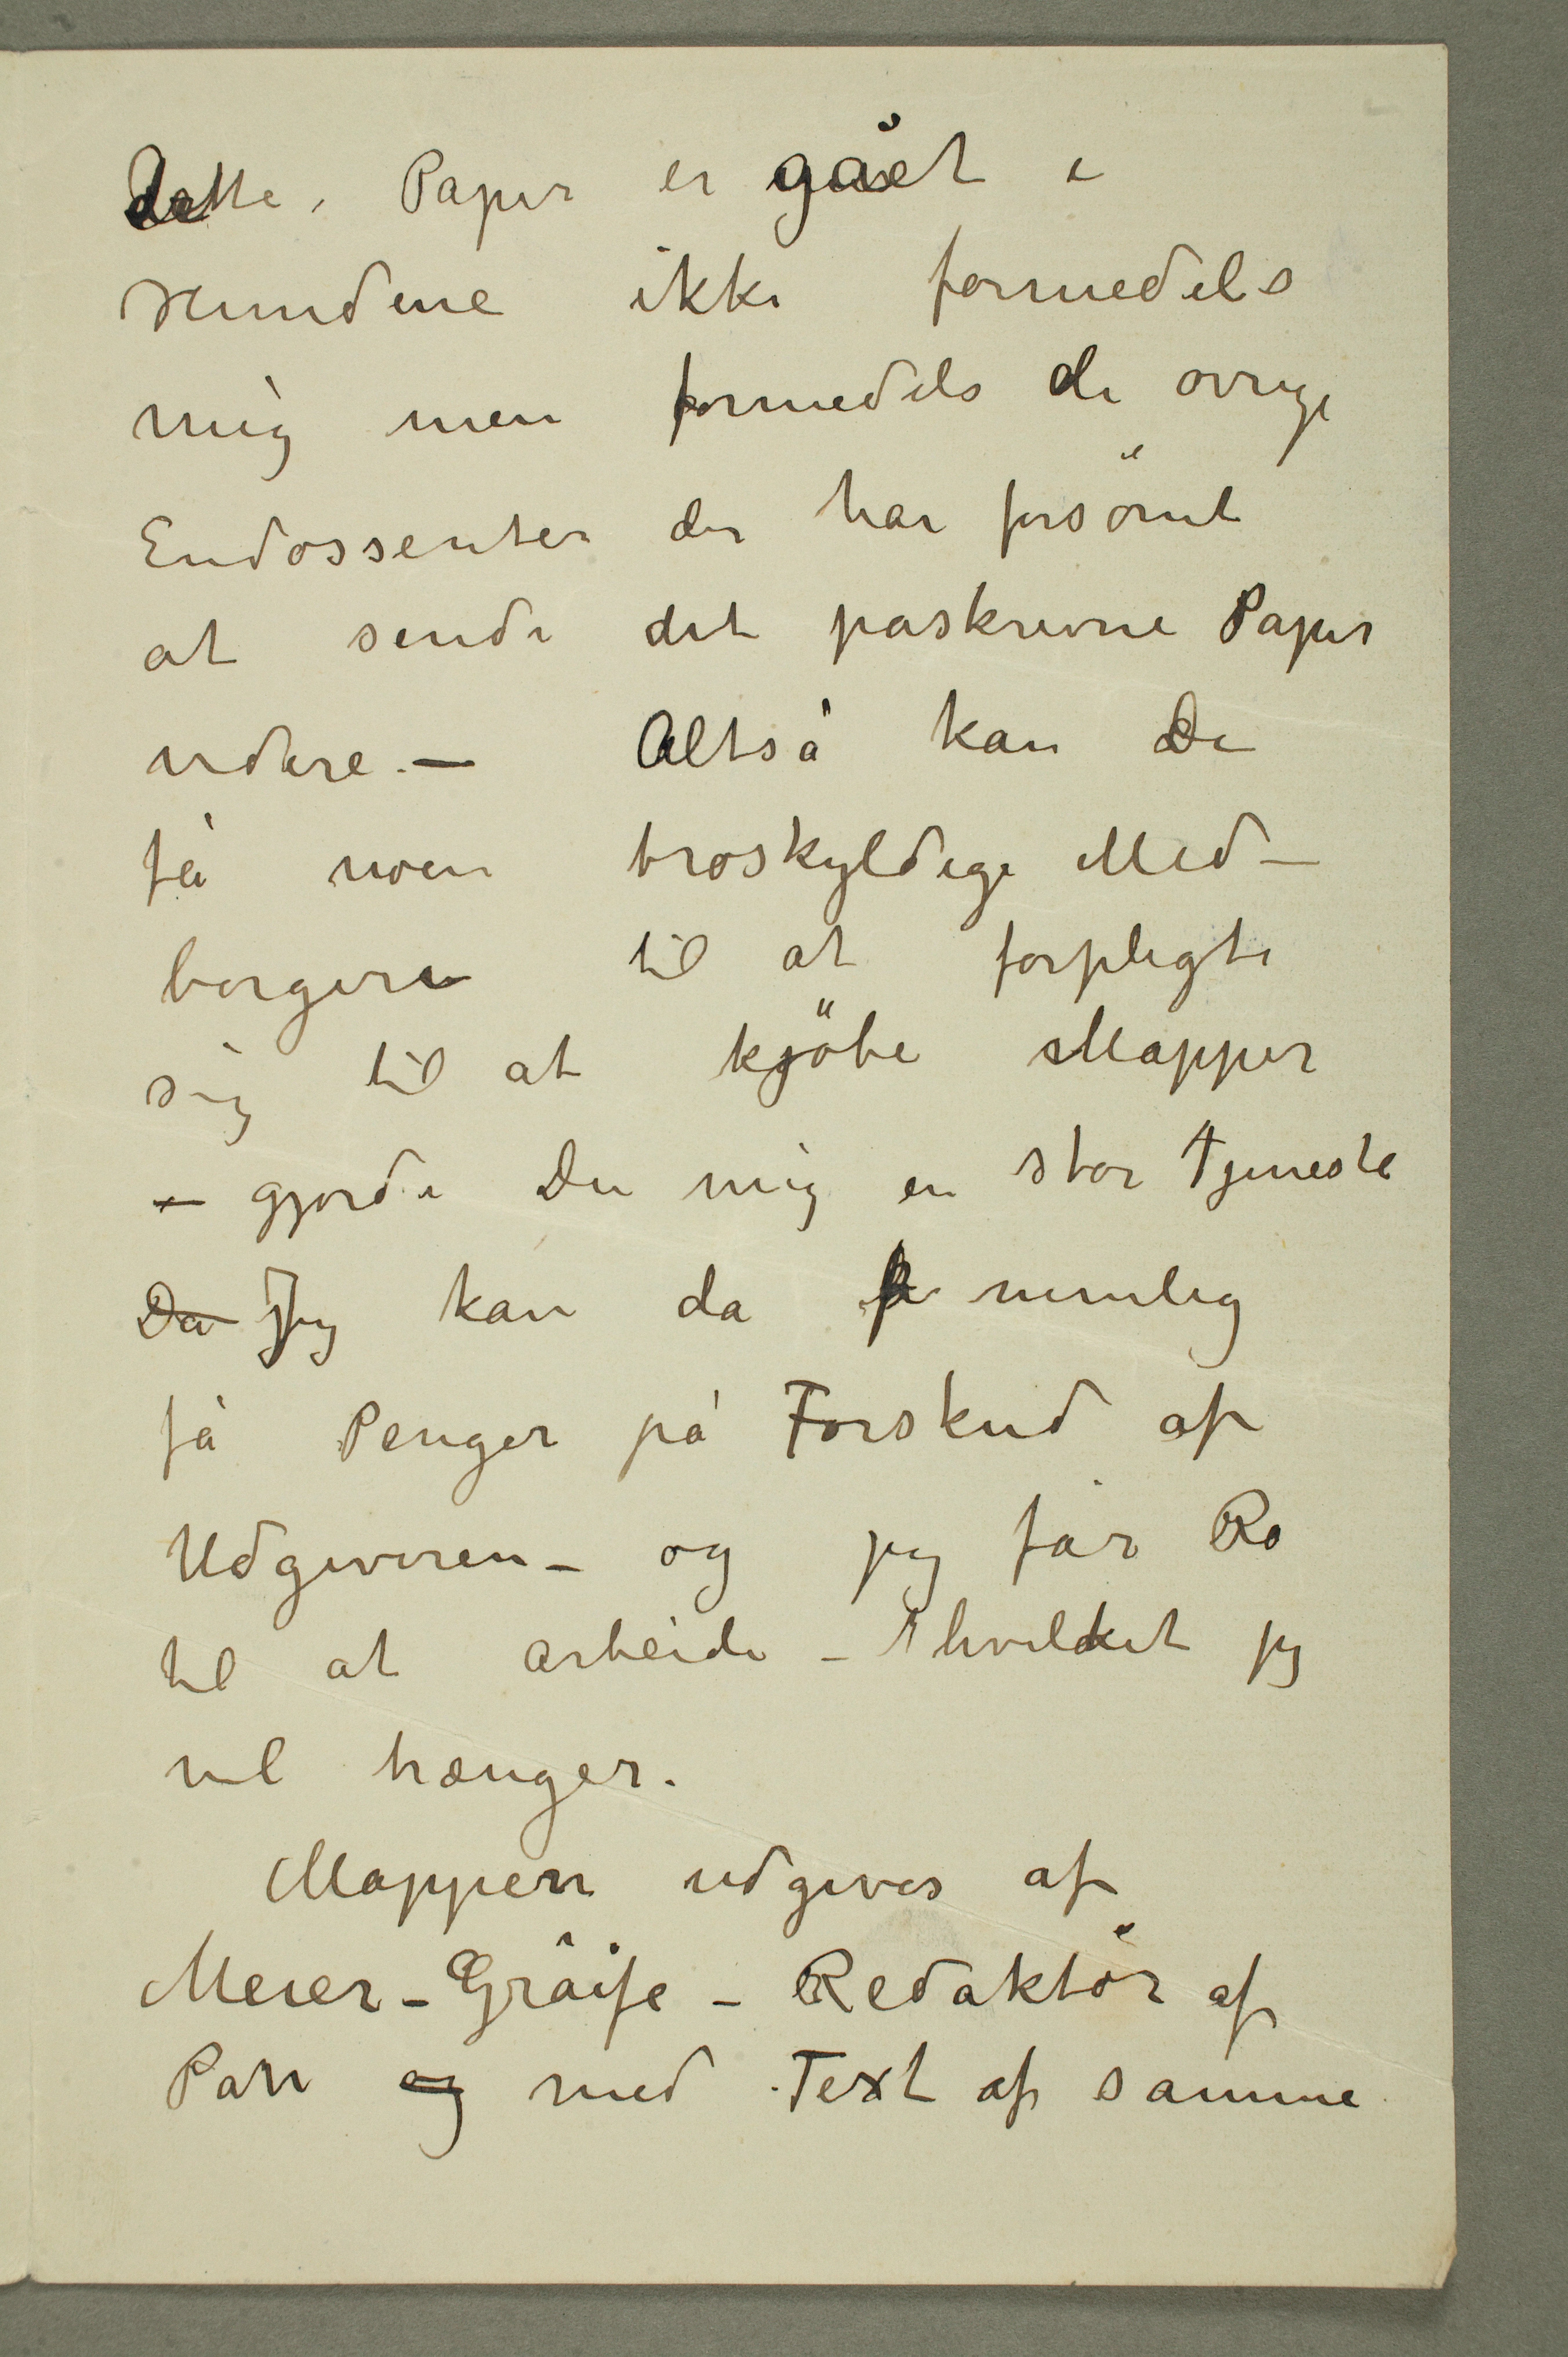 dette. Papir er gået i
Hundene ikke formedels
mig men formedels de ovrige
Endossenter der har forsömt
at sende det paskrevne Papir
videre. — Altså kan De
få noen troskyldige Med-
borgere til at forpligte
sig til at kjöbe Mapper
– gjorde Du mig en stor Tjeneste
Da Jeg kan da nemlig
få Penger på Forskud af
Udgiveren – og jeg får Ro
til at arbeide – hvilket jeg
vel trænger.
Mappen udgives af
Meier-Gräife – Redaktör af
Pan og med Text af samme